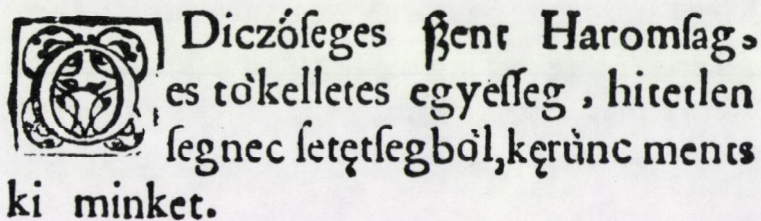 O Diczóſeges ſzent Haromſag,
es tòkelletes egyeſſeg, hitetlen
ſegnec ſetętſegbòl, kęrùnc ments
ki minket.